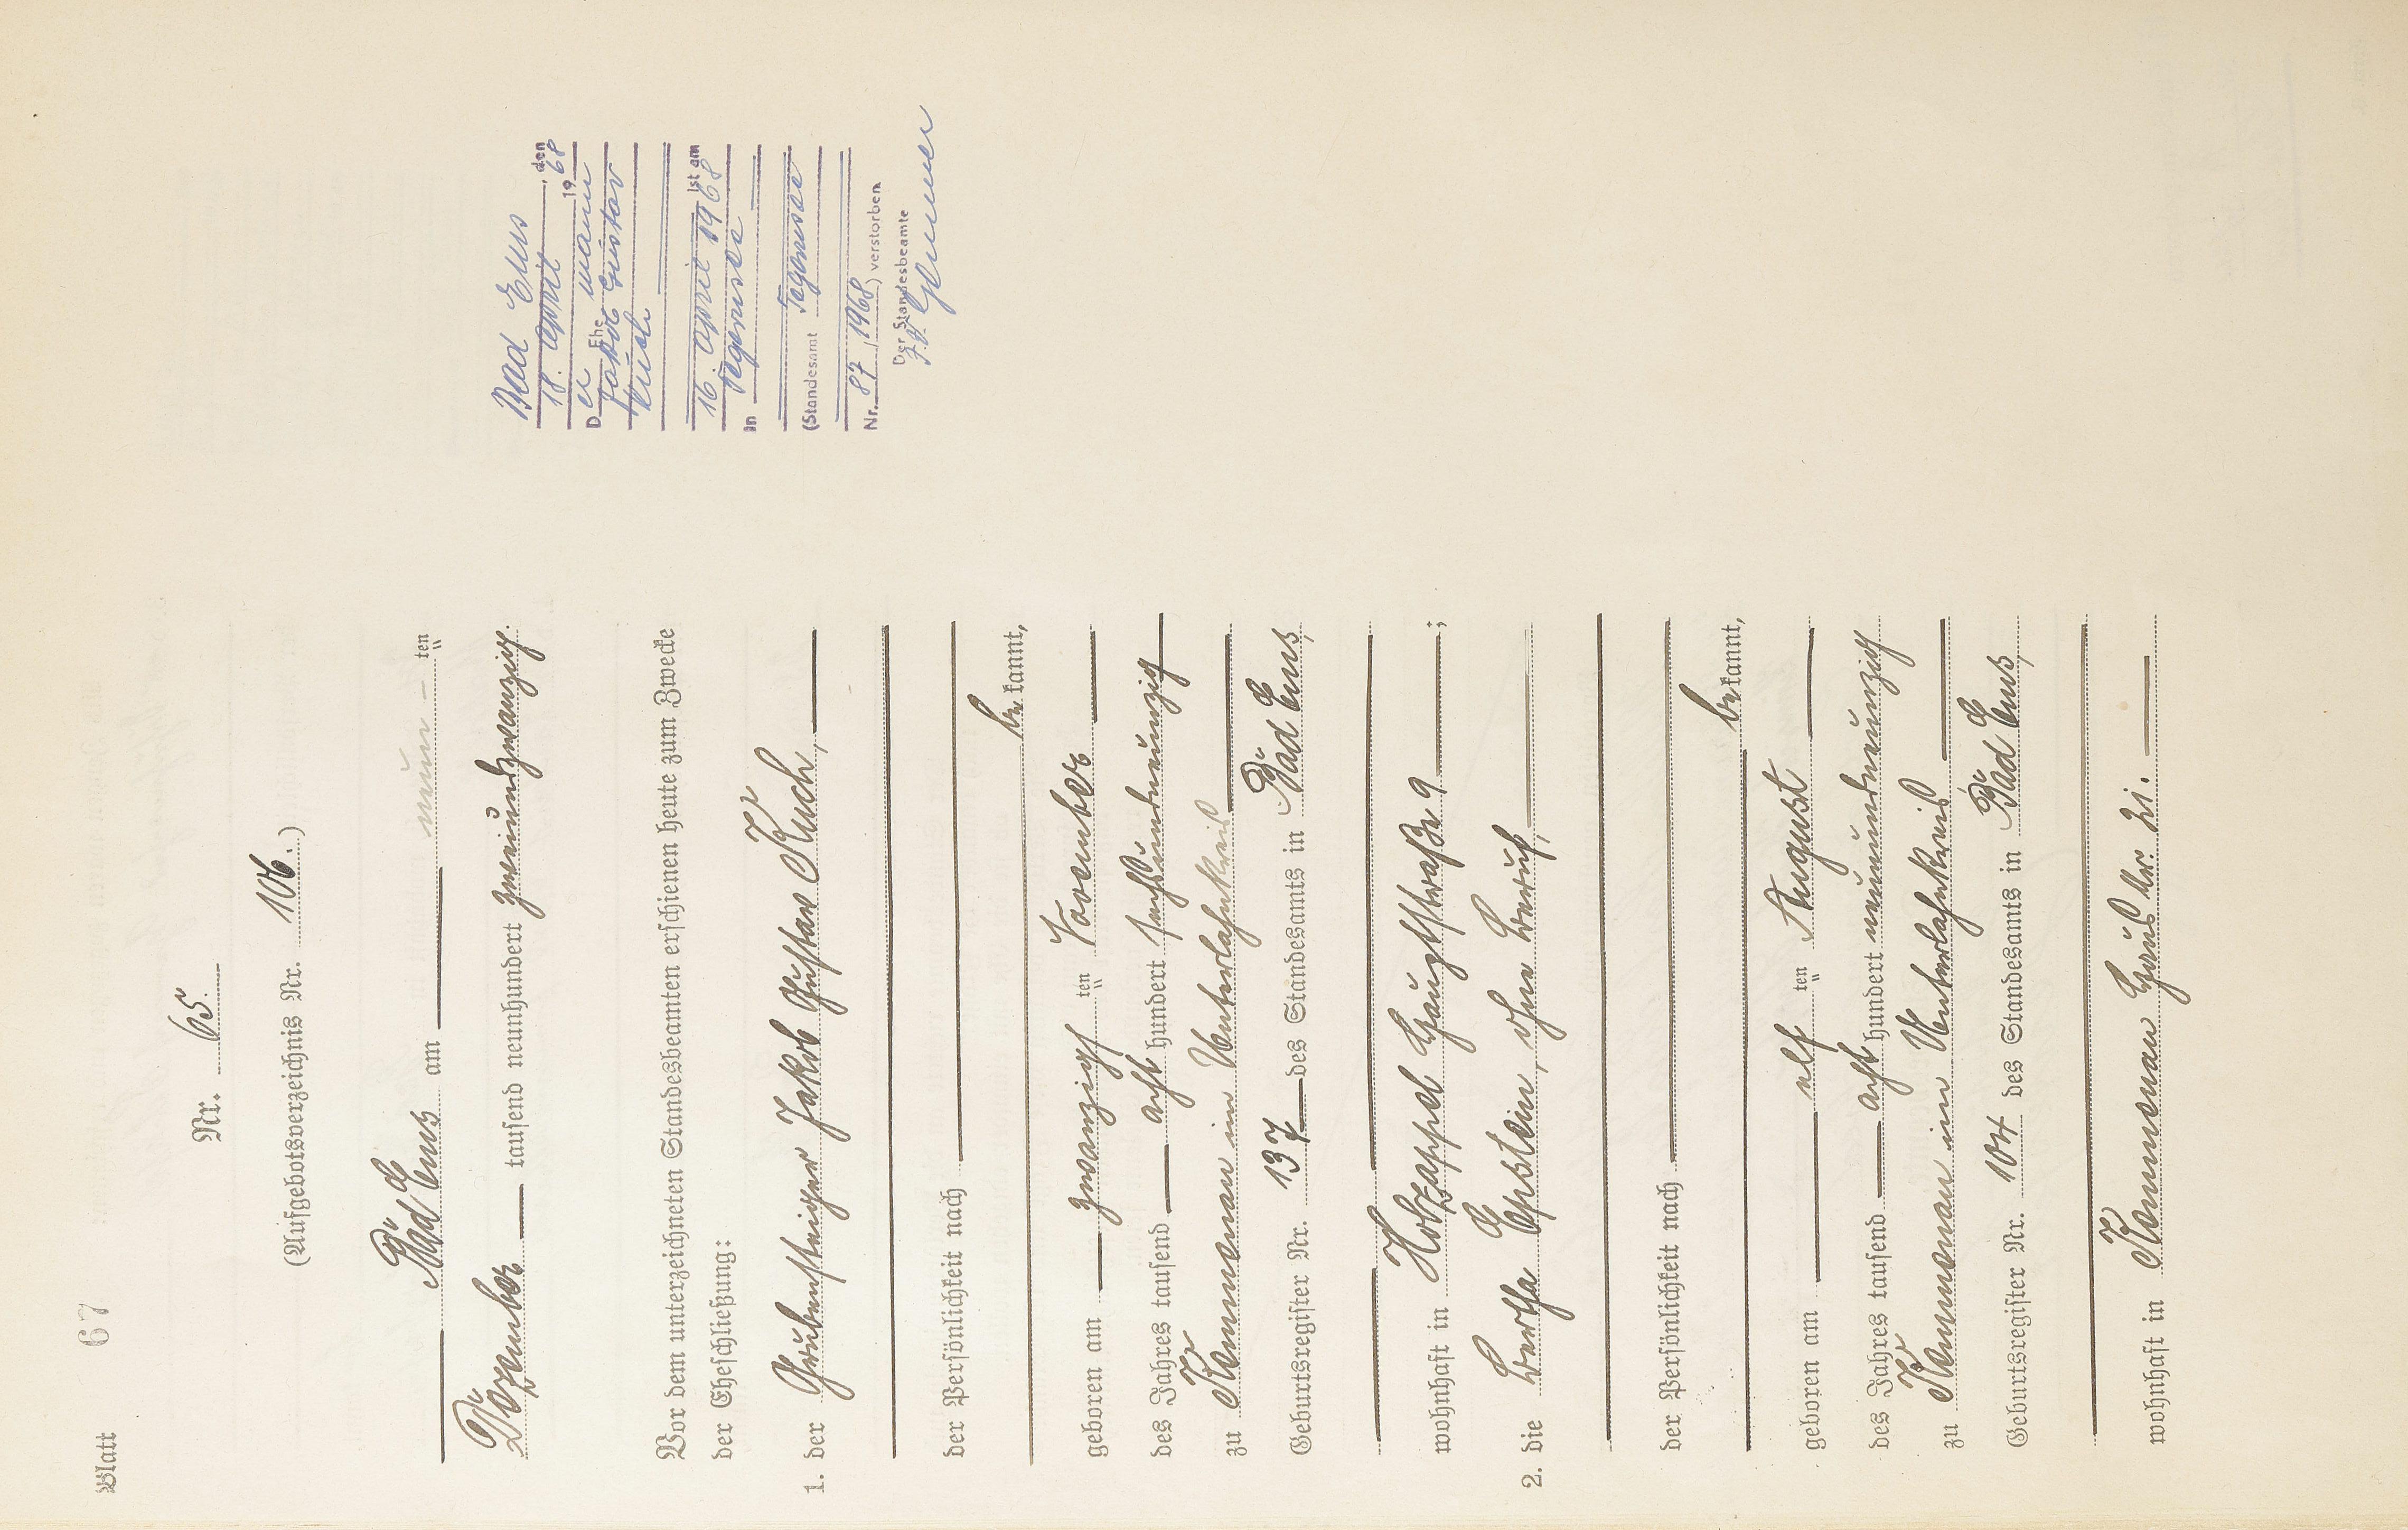 Blatt 67
Nr. 65.
(Aufgebotsverzeichnis Nr. 106.)
Bad Ems am neun - ten
Dezember tausend neunhundert zweiundzwanzig.
Vor dem unterzeichneten Standesbeamten erschienen heute zum Zwecke
der Eheschließung:
1. der Grubensteiger Jakob Gustav Kuch,
der Persönlichkeit nach
bekannt,
geboren am zwanzigsten November
des Jahres tausend acht hundert sechsundneunzig
zu Kemmenau im Unterlahnkreis
Geburtsregister Nr. 137 des Standesamts in Bad Ems,
wohnhaft in Holzappel Hauptstraße 9;
2. die Bertha Epstein, ohne Beruf,
der Persönlichkeit nach
bekannt,
geboren am elf ten August
des Jahres tausend acht hundert neunundneunzig
zu Kemmenau im Unterlahnkreis
Geburtsregister Nr. 104 des Standesamts in Bad Ems,
wohnhaft in Kemmenau Haus Nr.
Bad Ems, den
18. April 1968
Der Ehemann
Jakob Gustav
Kuch
ist am
16. April 1968
in Tegernsee
(Standesamt Tegernsee
Nr. 87/1968) verstorben
Der Standesbeamte